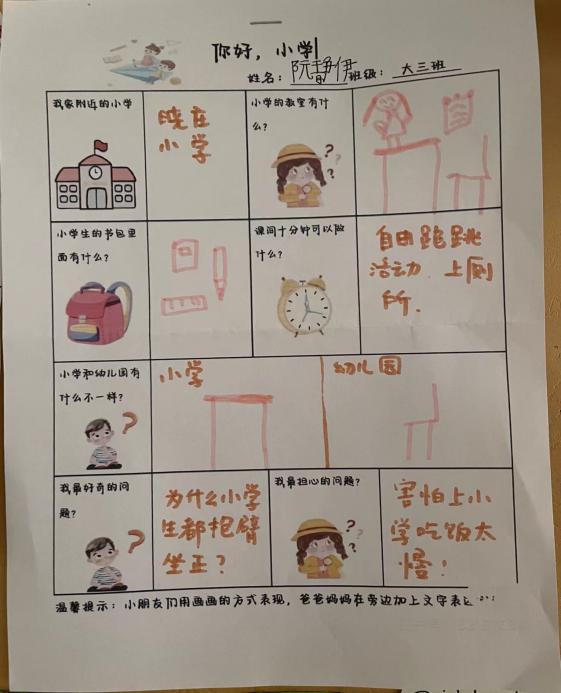 你好，小学
姓名：阮静伊 班级：大三班
我家附近的小学
小学
小学的教室有什
么？
小学生的书包里
面有什么？
课间十分钟可以做
什么？
自由跑跳
活动、上厕
所.
小学和幼儿园有
什么不一样？
小学
幼儿园
我最好奇的问
题？
为什么小学
生都抱臂
坐正？
我最担心的问题？
害怕上小
学吃饭太
慢！
温馨提示：小朋友们用画画的方式表现，爸爸妈妈在旁边加上文字表